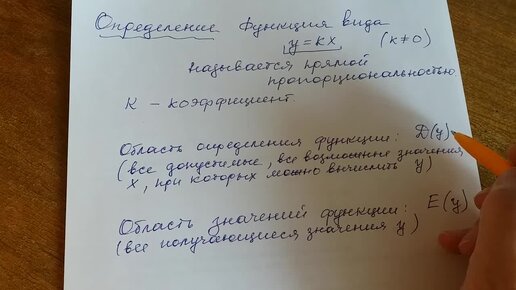 Определение Функция вида
y = kx (k≠0)
называется прямой
пропорциональностью.
К – коэффициент.
Область определения функции: D(y)
(все допустимые, все возможные значения
x, при которых можно вычислить y)
Область значений функции: E(y)
(все получающиеся значения y)